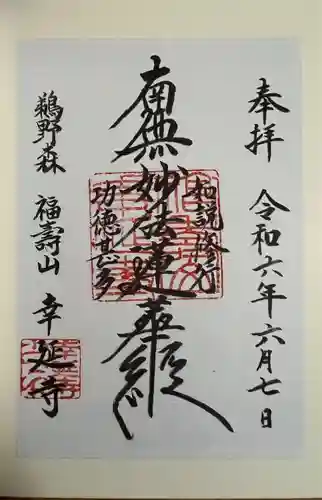 奉拝 令和六年六月七日
如説修行
南無妙法蓮華経
功徳甚多
鵜野森 福壽山 幸延寺